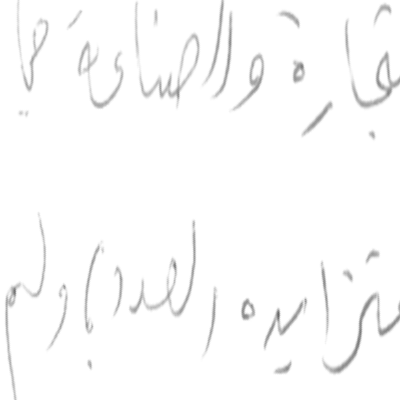 تجارة والصناعة
متزايده العدد، ولم